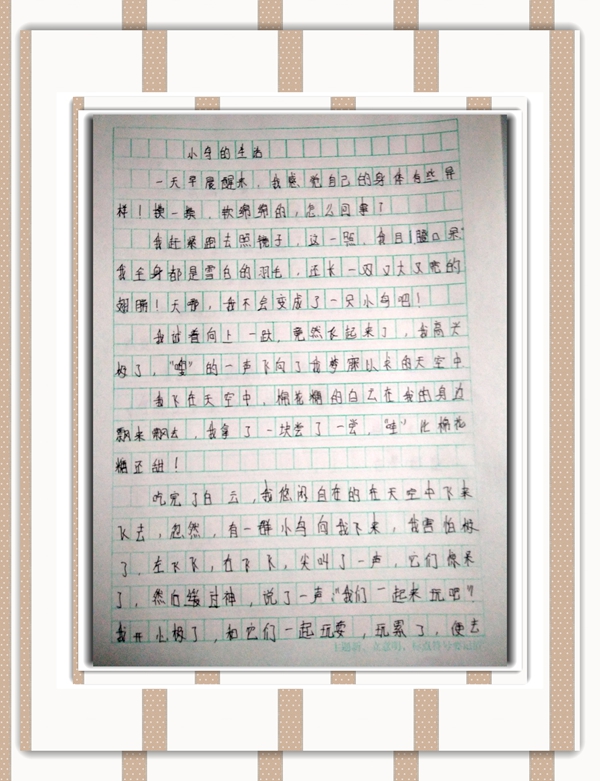 小鸟的生活
一天早晨醒来，我感觉自己的身体有些异
样！摸一摸，软绵绵的，怎么回事？
我赶紧跑去照镜子，这一照，我目瞪口呆，
我全身都是雪白的羽毛，还长一双又大又亮的
翅膀！天哪，我不会变成了一只小鸟吧！
我试着向上一跃，竟然飞起来了，我高兴
极了，“嗖”的一声飞向了我梦寐以求的天空中
我飞在天空中，棉花糖的白云在我的身边
飘来飘去，我拿了一块尝了一尝，“哇”比棉花
糖还甜！
吃完了白云，我悠闲自在的在天空中飞来
飞去，忽然，有一群小鸟向我飞来，我害怕极
了，左飞飞，右飞飞，尖叫了一声，它们惊呆
了，然后缓过神，说了一声：“我们一起来玩吧？
我开心极了，和它们一起玩耍，玩累了，便去
主题新、立意明，标点符号要记清